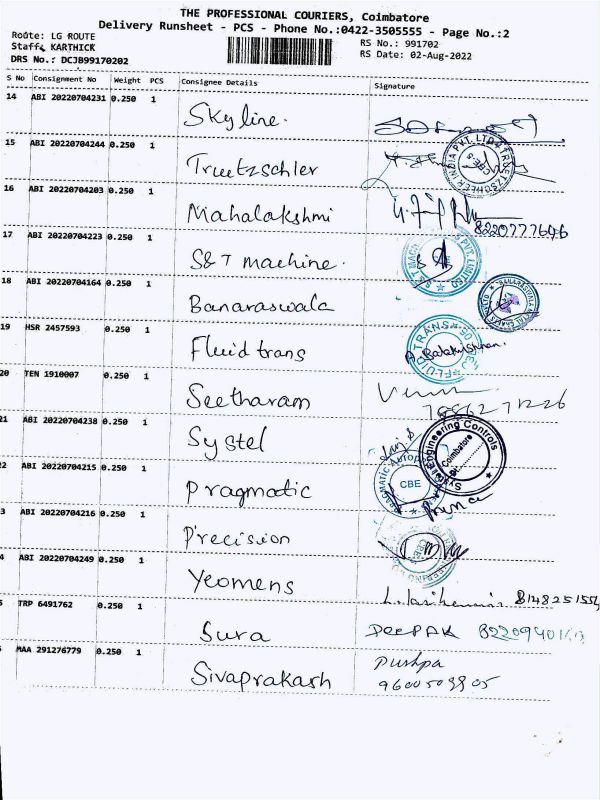 THE PROFESSIONAL COURIERS, Coimbatore
Delivery Runsheet - PCS - Phone No.:0422-3505555 - Page No.:2
Route: LG ROUTE
Staff: KARTHICK
DRS No.: DCJB99170202
RS No.: 991702
RS Date: 02-Aug-2022
S No Consignment No Weight PCS Consignee Details Signature
14 ABI 20220704231 0.250 1 Skyline.
15 ABI 20220704244 0.250 1 Truetzschler
16 ABI 20220704203 0.250 1 Mahalakshmi 8220777696
17 ABI 20220704223 0.250 1 S&T machine.
18 ABI 20220704164 0.250 1 Banaraswala
19 HSR 2457593 0.250 1 Fluid trans A. Balakrishnan.
20 TEN 1910007 0.250 1 Seetharam
21 ABI 20220704238 0.250 1 Systel Engineering Controls Coimbatore
2 ABI 20220704215 0.250 1 Pragmatic CBE Prince
3 ABI 20220704216 0.250 1 Precision
4 ABI 20220704249 0.250 1 Yeomens 8148251554
TRP 6491762 0.250 1 Sura DeePAK
MAA 291276779 0.250 1 Sivaprakash Pushpa